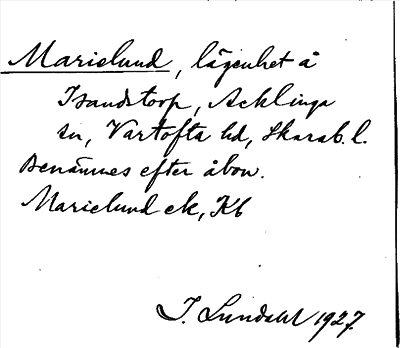 Marielund, lägenhet å
Isandstorp, Acklinga
sn, Vartofta hd, Skarab. l.
Benämnes efter åbon.
Marielund ek, Kb
I. Lundahl 1927.